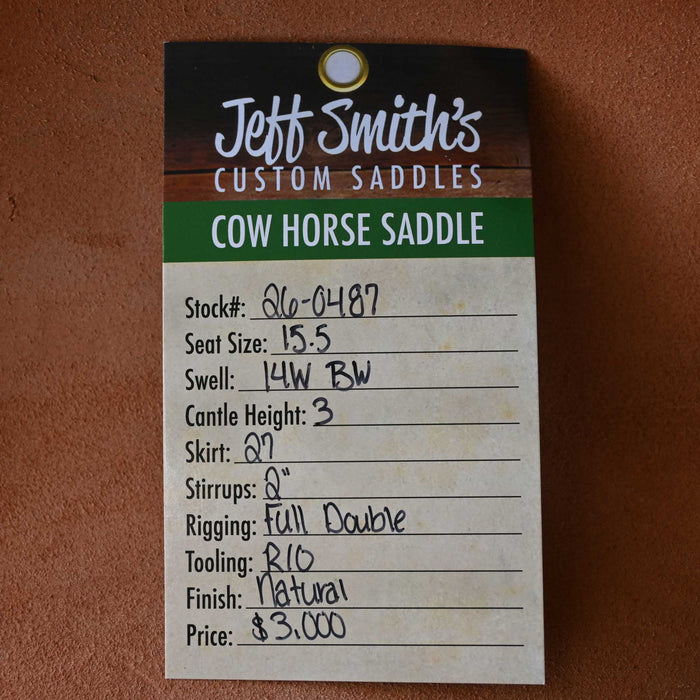 Jeff Smith's
CUSTOM SADDLES
COW HORSE SADDLE
Stock#: 26-0487
Seat Size: 15.5
Swell: 14W BW
Cantle Height: 3
Skirt: 27
Stirrups: 2"
Rigging: Full Double
Tooling: R10
Finish: Natural
Price: $3,000